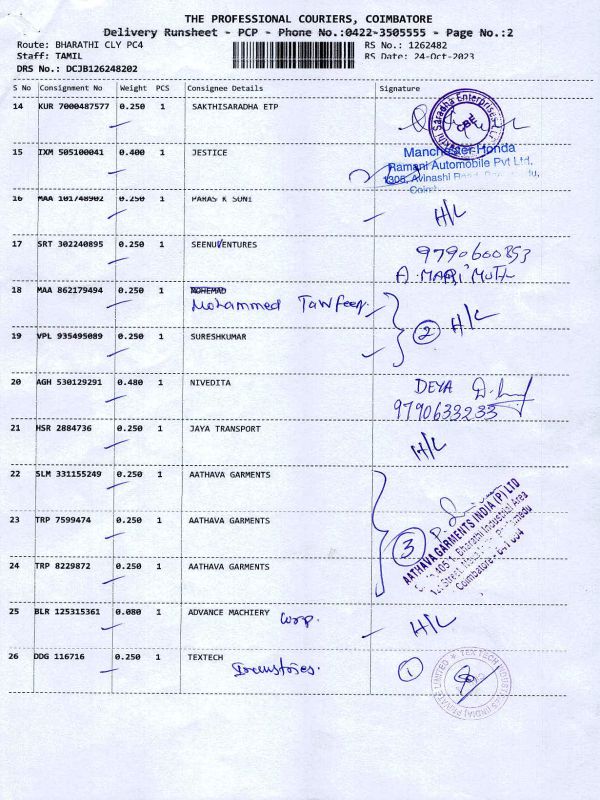 THE PROFESSIONAL COURIERS, COIMBATORE
Delivery Runsheet - PCP - Phone No.:0422-3505555 - Page No.:2
Route: BHARATHI CLY PC4 RS No.: 1262482
Staff: TAMIL RS Date: 24-Oct-2023
DRS No.: DCJB126248202
S No Consignment No Weight PCS Consignee Details Signature
14 KUR 7000487577 0.250 1 SAKTHISARADHA ETP
Sakthi Saradha Enterprises
CBE
15 IXM 505100041 0.400 1 JESTICE
Manchester Honda
Ramani Automobile Pvt Ltd.
1306, Avinashi Road
16 MAA 101748902 0.250 1 PARAS K SONI H/L
17 SRT 302240895 0.250 1 SEENUVENTURES 9790600853
A. MARI MUTH
18 MAA 862179494 0.250 1 MOHEMAD
Mohammed Tawfeeq.
2 H/L
19 VPL 935495089 0.250 1 SURESHKUMAR
20 AGH 530129291 0.480 1 NIVEDITA DEYA
9790633233
21 HSR 2884736 0.250 1 JAYA TRANSPORT H/L
22 SLM 331155249 0.250 1 AATHAVA GARMENTS
23 TRP 7599474 0.250 1 AATHAVA GARMENTS
3
AATHAVA GARMENTS INDIA (P) LTD
405 1, Bharathi Industrial Area
1st Street,
Coimbatore - 641 004
24 TRP 8229872 0.250 1 AATHAVA GARMENTS
25 BLR 125315361 0.080 1 ADVANCE MACHIERY Corp. H/L
26 DDG 116716 0.250 1 TEXTECH 1
TEXTECH INDUSTRIES (INDIA) PRIVATE LIMITED